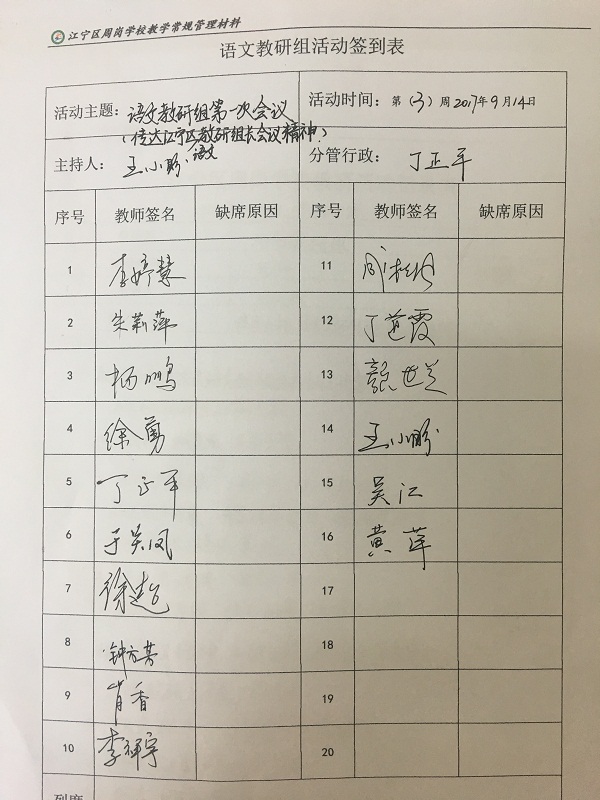 江宁区周岗学校教学常规管理材料
语文教研组活动签到表
活动主题: 语文教研组第一次会议
(传达江宁区教研组长会议精神)
语文
活动时间: 第(3)周 2017年9月14日
主持人: 王小彬
分管行政: 丁正军
序号 教师签名 缺席原因 序号 教师签名 缺席原因
1 李婷慧 11
2 朱莉萍 12 丁道霞
3 杨鹏 13
4 徐勇 14 王小彬
5 丁正军 15 吴江
6 于吴凤 16 黄萍
7 徐超 17
8 钟方芳 18
9 肖香 19
10 李祥宇 20
到席